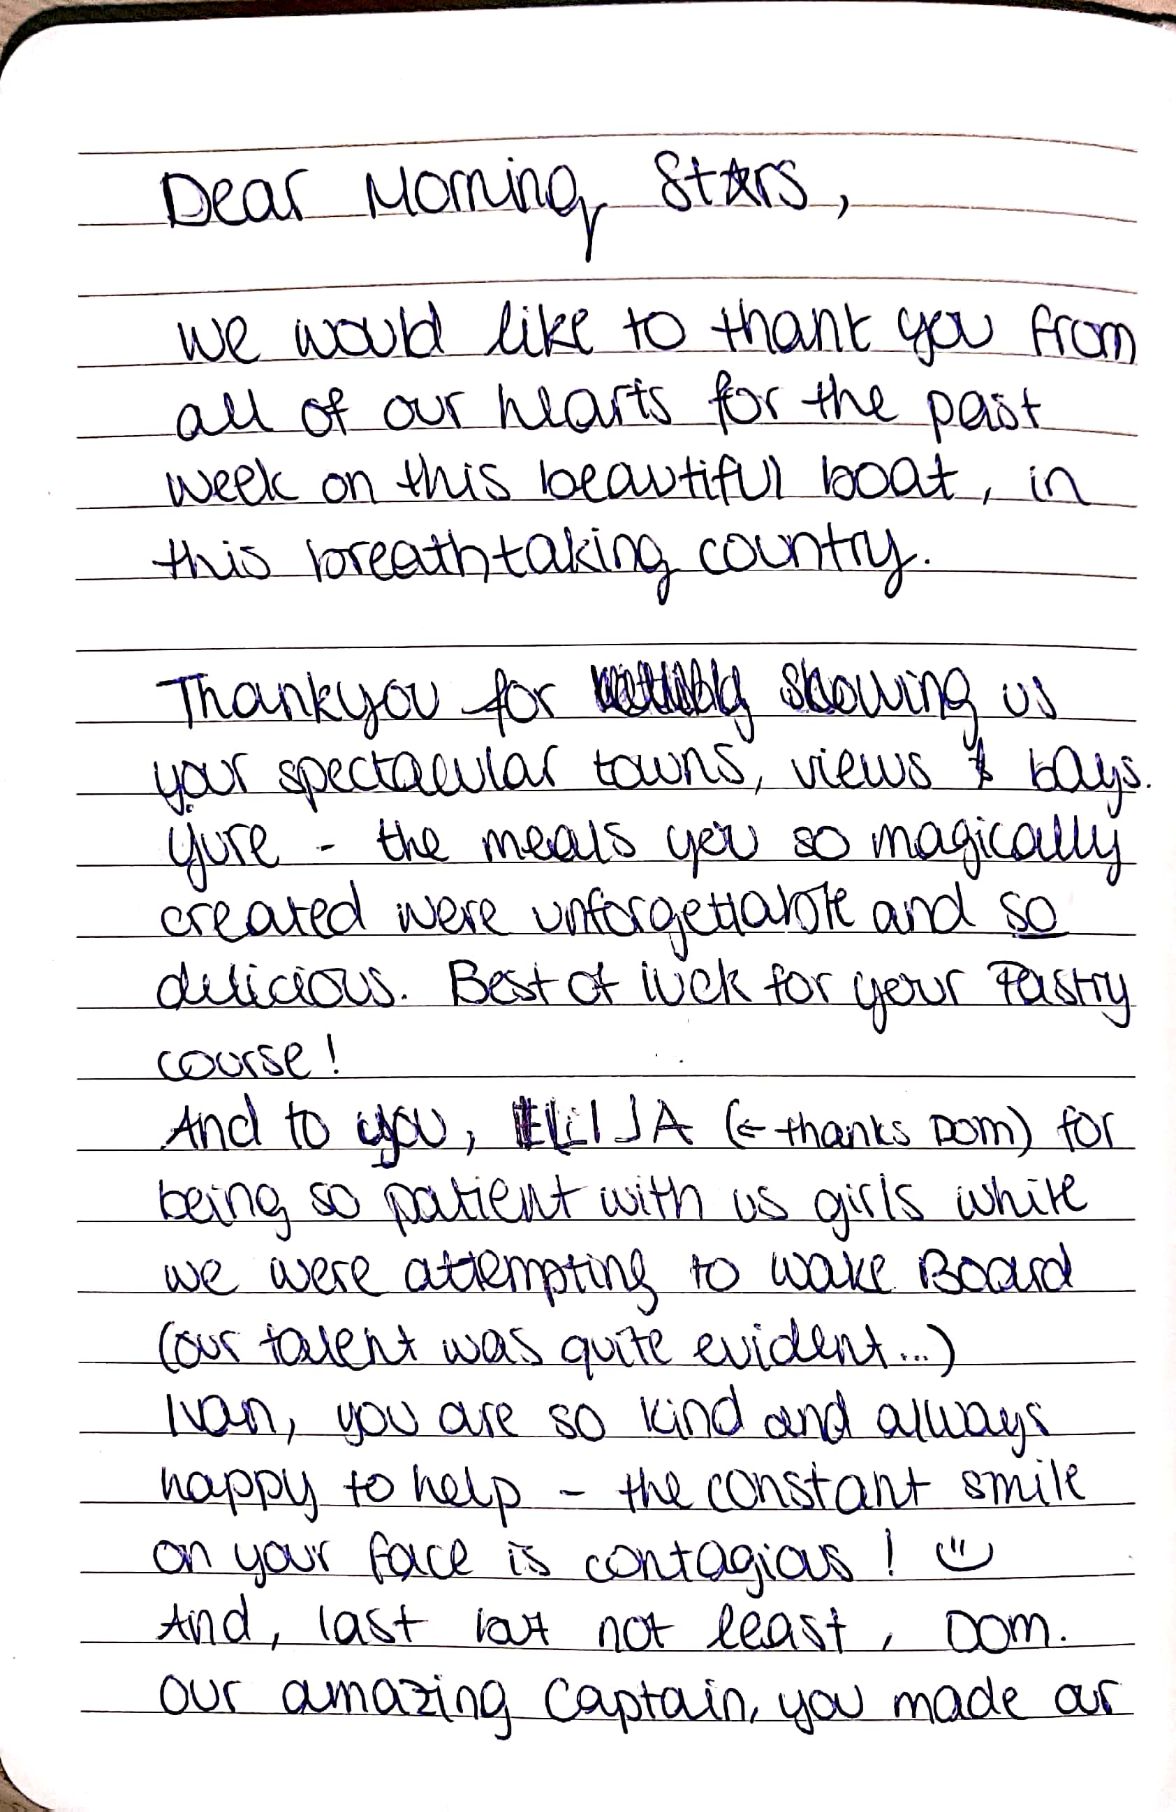 Dear Morning Stars,
we would like to thank you from
all of our hearts for the past
week on this beautiful boat, in
this breathtaking country.
Thankyou for showing us
your spectacular towns, views & bays.
Yure - the meals you so magically
created were unforgettable and so
delicious. Best of luck for your Pastry
course!
And to you, ILIJA (← thanks Dom) for
being so patient with us girls while
we were attempting to wake Board
(our talent was quite evident...)
Ivan, you are so kind and always
happy to help - the constant smile
on your face is contagious! ü
And, last but not least, Dom.
our amazing Captain, you made our